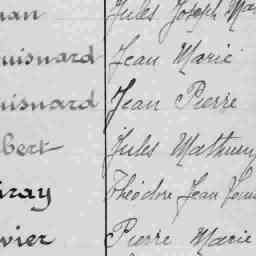 Jules Joseph
uisnard Jean Marie
uisnard Jean Pierre
bert Jules Mathurin
ray Théodore Jean
vier Pierre Marie